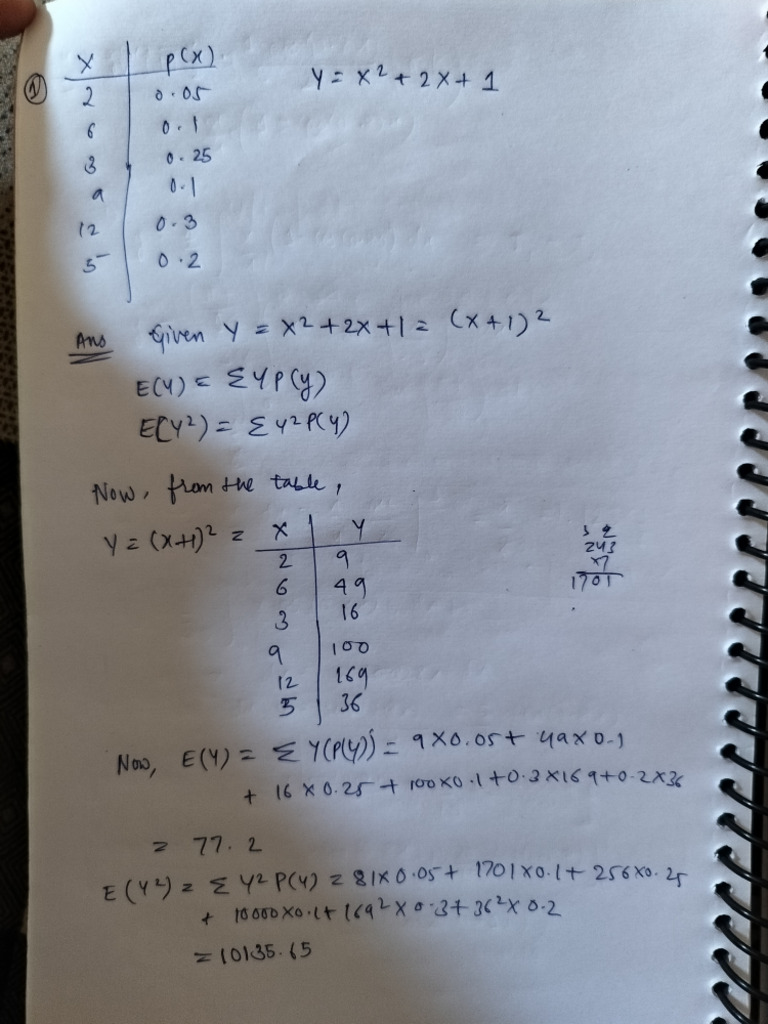 ① X P(X)
Y = X² + 2X + 1
2 0.05
6 0.1
3 0.25
9 0.1
12 0.3
5 0.2
Ans Given Y = X² + 2X + 1 = (X+1)²
E(Y) = ΣYP(y)
E(Y²) = ΣY²P(Y)
Now, from the table,
Y = (X+1)² = X Y
2 9
6 49
3 16
9 100
12 169
5 36
3 2
243
x7
1701
Now, E(Y) = ΣY(P(Y)) = 9X0.05 + 49X0.1
+ 16 X 0.25 + 100X0.1 + 0.3X169 + 0.2X36
= 77.2
E(Y²) = ΣY²P(Y) = 81X0.05 + 1701X0.1 + 256X0.25
+ 10000X0.1 + 169²X0.3 + 36²X0.2
= 10135.65